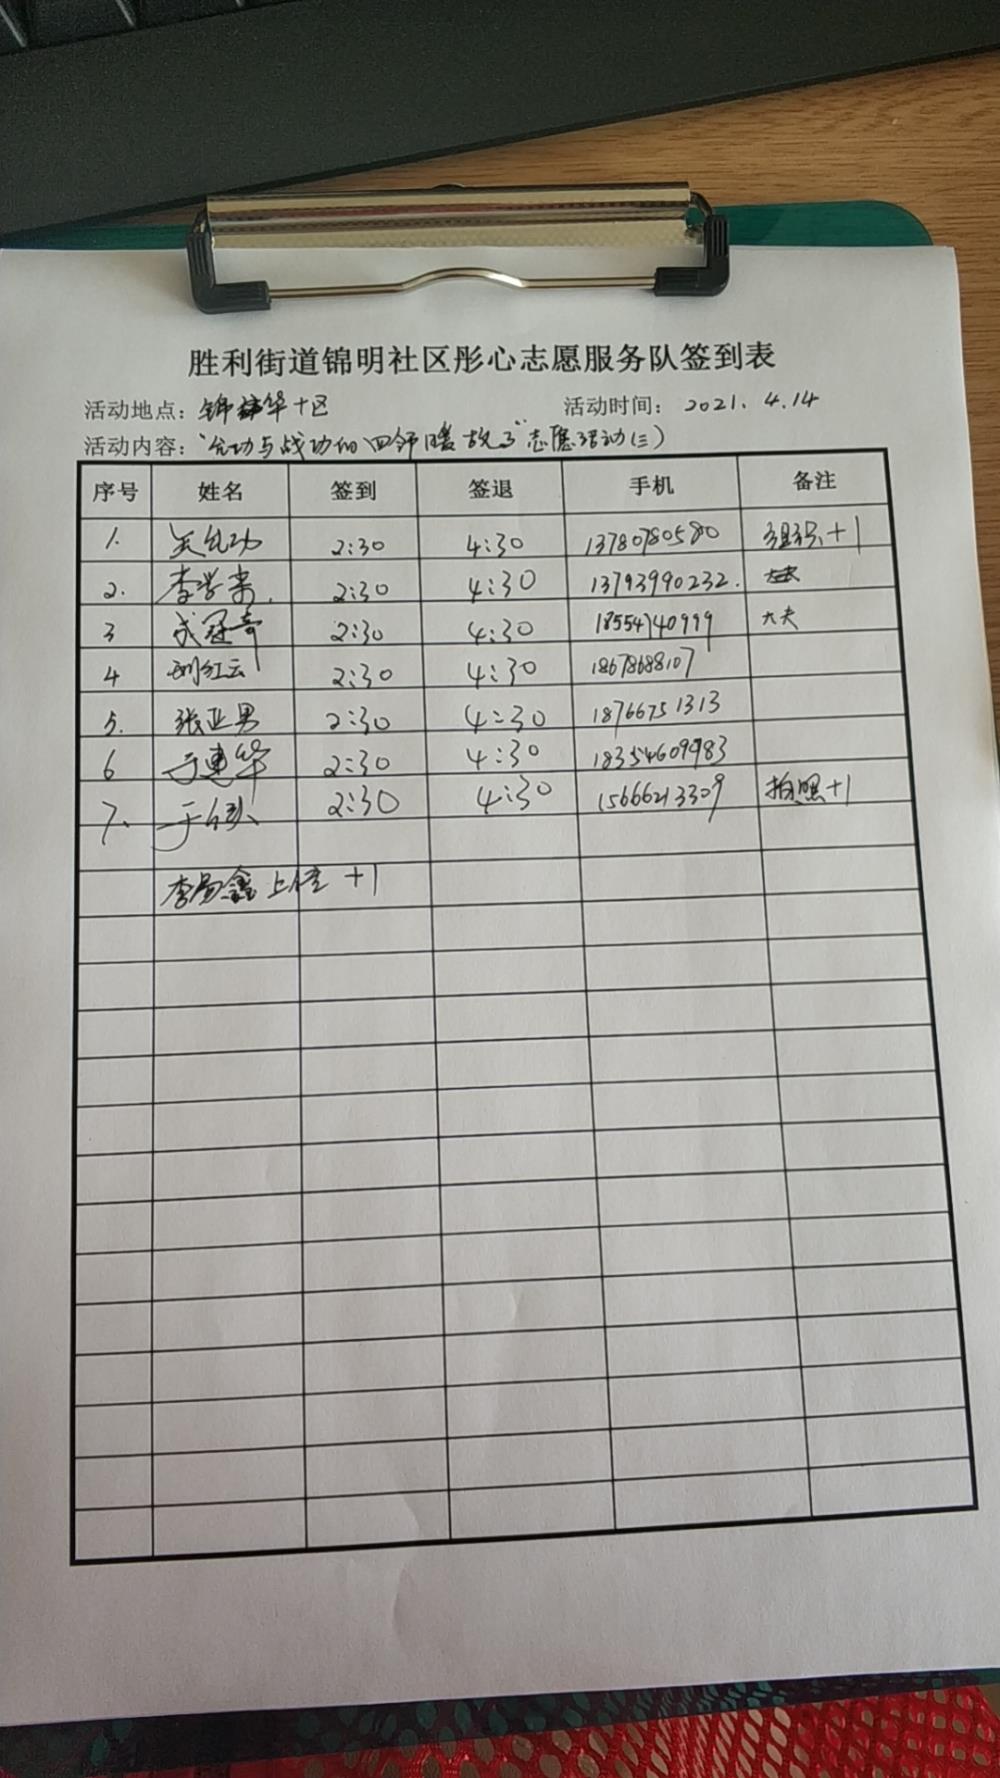 胜利街道锦明社区彤心志愿服务队签到表
活动地点：锦华十区 活动时间：2021.4.14
活动内容："允功与战功的四邻暖故了"志愿活动(三)
序号 姓名 签到 签退 手机 备注
1. 允功 2:30 4:30 13780780580 组织+1
2. 李学 2:30 4:30 13793990232.
3 成冠奇 2:30 4:30 18554740999 大夫
4 刘红云 2:30 4:30 18678688107
5. 张亚男 2:30 4:30 18766751313
6 于建华 2:30 4:30 18354609983
7. 于 2:30 4:30 15666213309 拍照+1
李易鑫上传+1